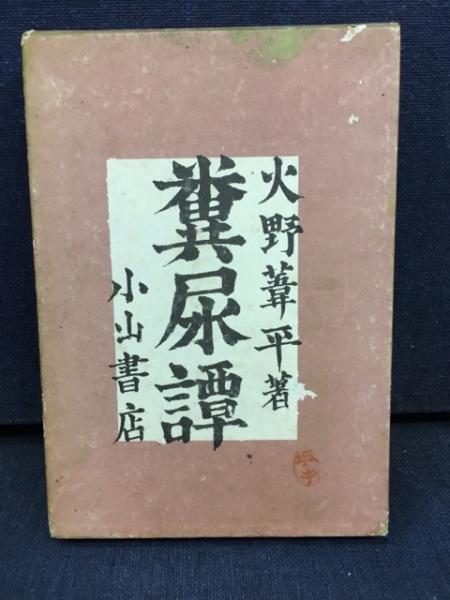 火野葦平著
糞尿譚
小山書店